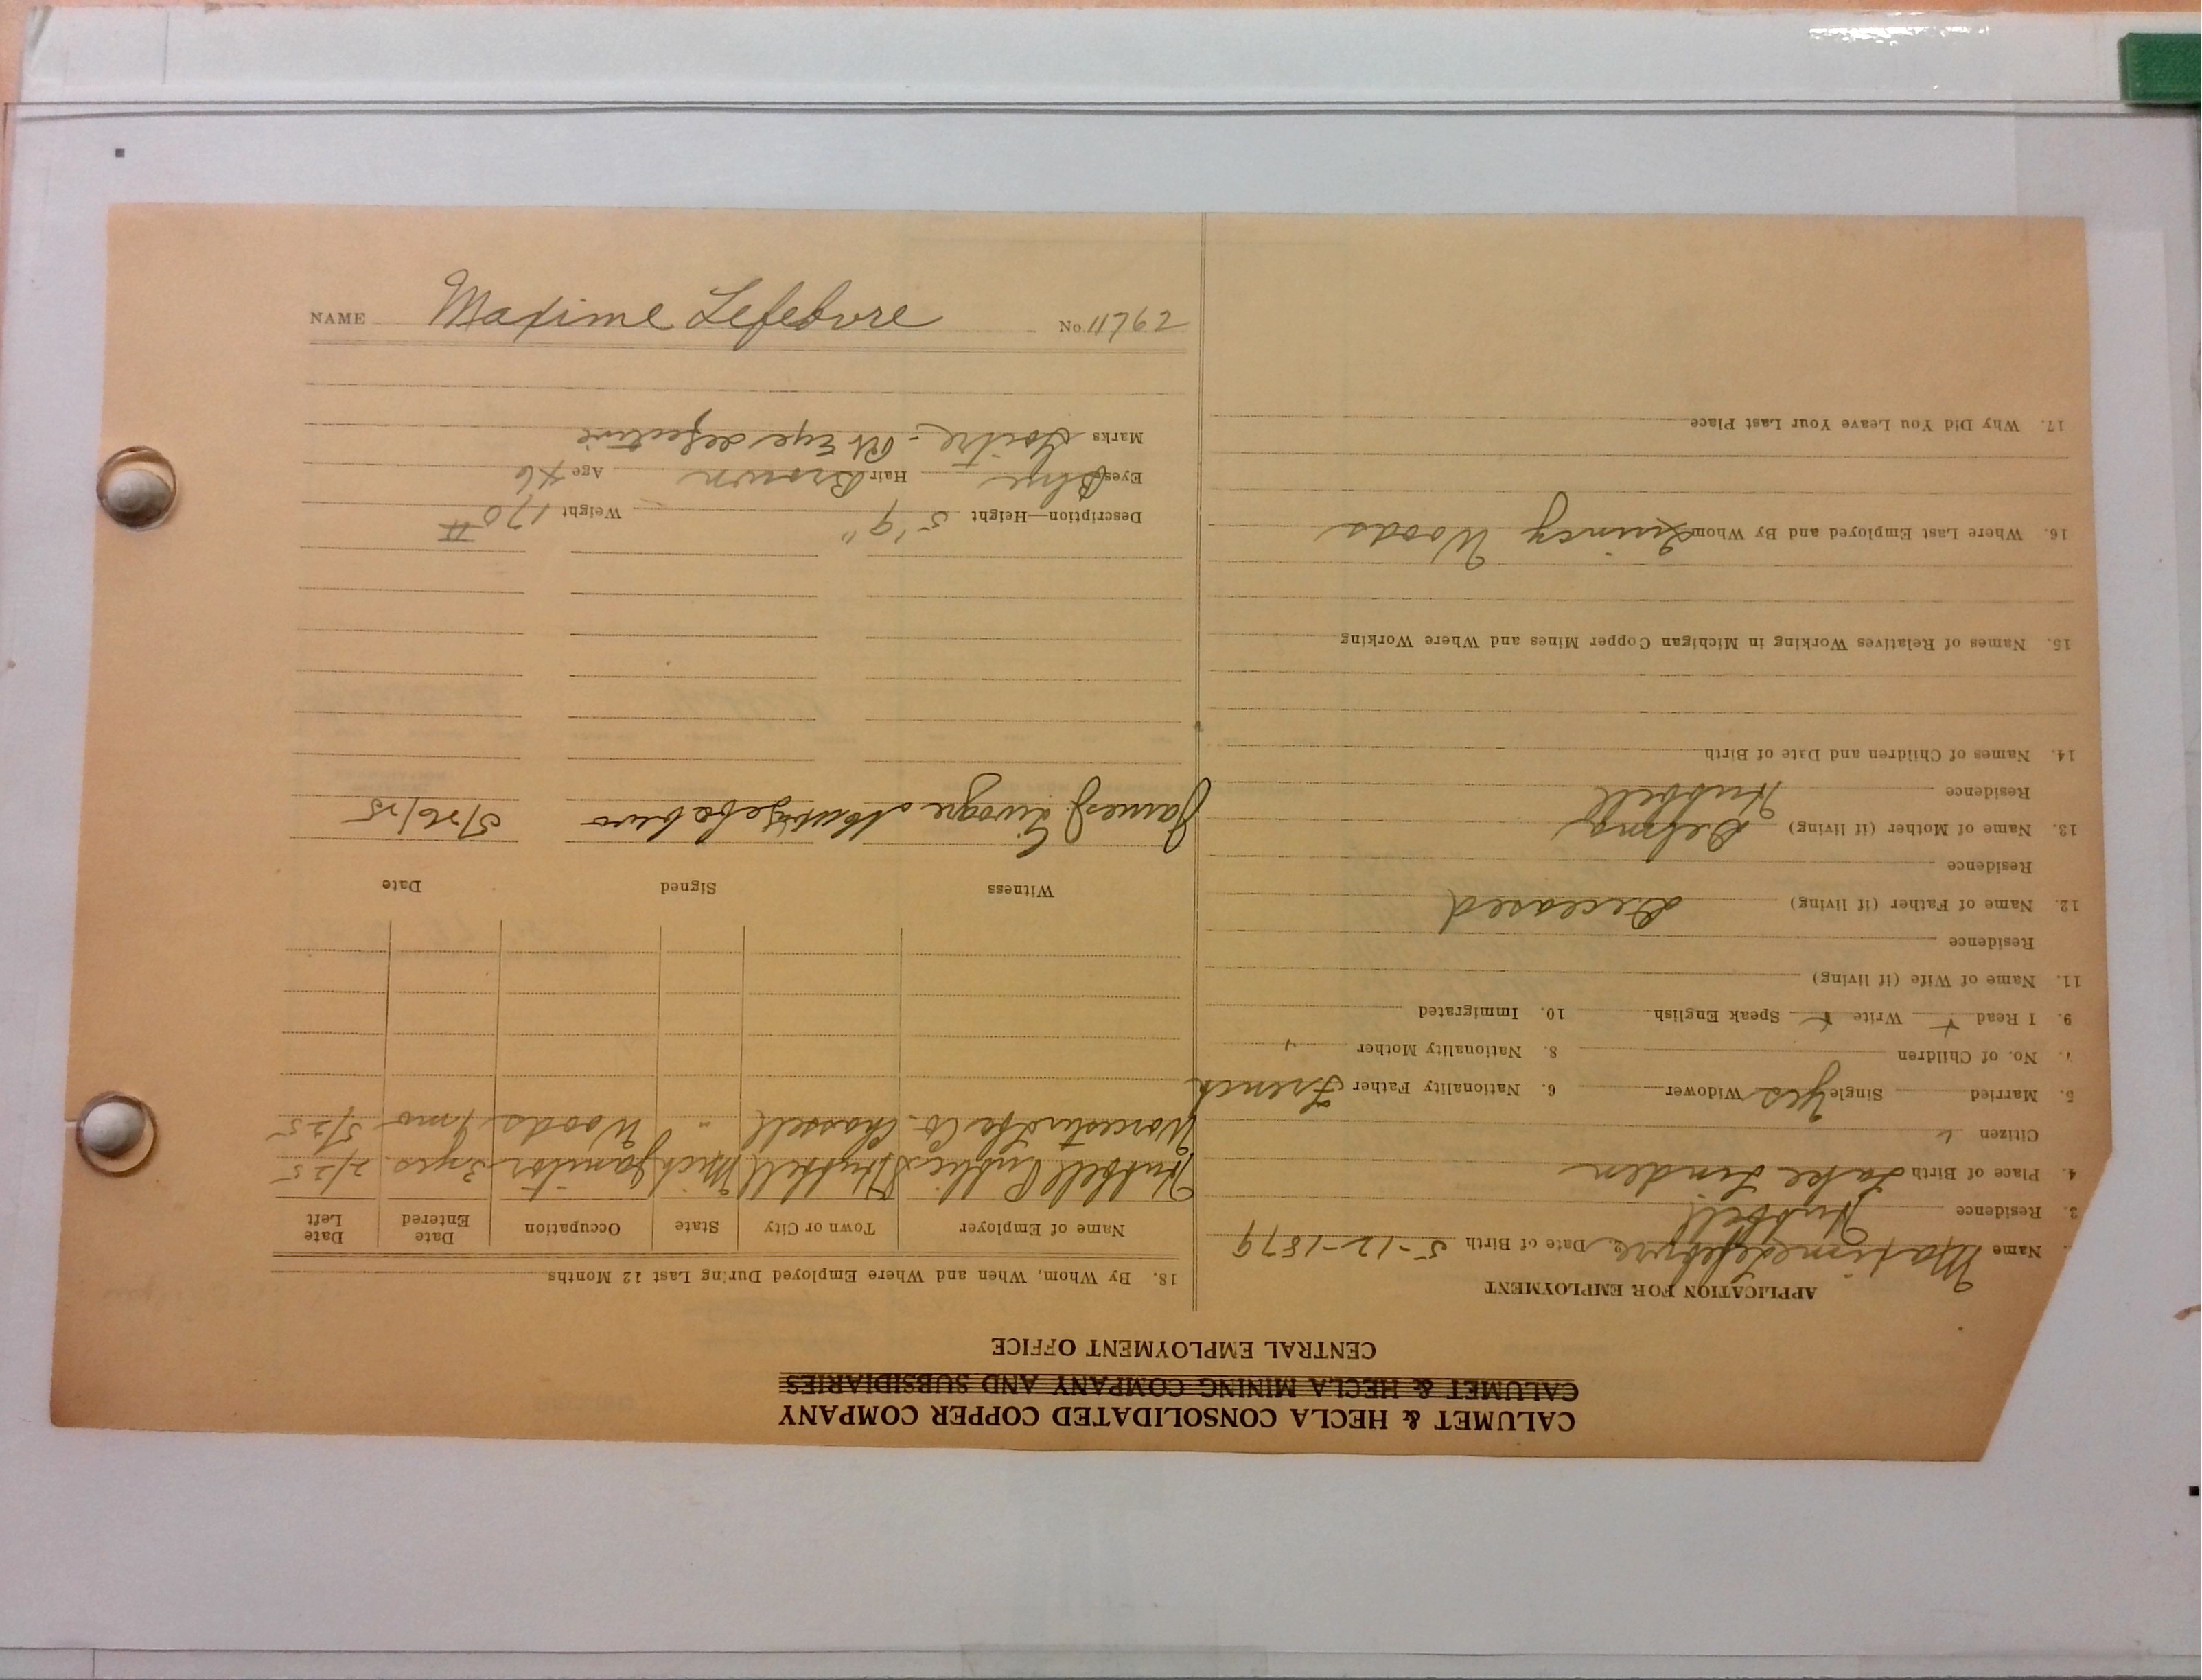 NAME Maxime Lefebvre No. 11762
CALUMET & HECLA CONSOLIDATED COPPER COMPANY
CALUMET & HECLA MINING COMPANY AND SUBSIDIARIES
CENTRAL EMPLOYMENT OFFICE
APPLICATION FOR EMPLOYMENT
Name Maxime Lefebvre Date of Birth 5-12-1879
3. Residence Hubbell
4. Place of Birth Lake Linden
Citizen
5. Married Single Yes Widower 6. Nationality Father French
7. No. of Children 8. Nationality Mother "
9. I Read + Write + Speak English 10. Immigrated
11. Name of Wife (if living)
Residence
12. Name of Father (if living) Deceased
Residence
13. Name of Mother (if living) Delma
Residence Hubbell
14. Names of Children and Date of Birth
15. Names of Relatives Working in Michigan Copper Mines and Where Working
16. Where Last Employed and By Whom Quincy Woods
17. Why Did You Leave Your Last Place
18. By Whom, When and Where Employed During Last 12 Months
Name of Employer Town or City State Occupation Date Entered Date Left
Hubbell Public Hubbell Mich Janitor 3 yrs. 2/25
Worcester Co. Chassell " Woods 1 mo 5/25
Witness Signed Date
James J. 5/26/25
Description—Height 5' 9" Weight 170 #
Eyes Blue Hair Brown Age 46
Marks Goitre - Rt Eye defective